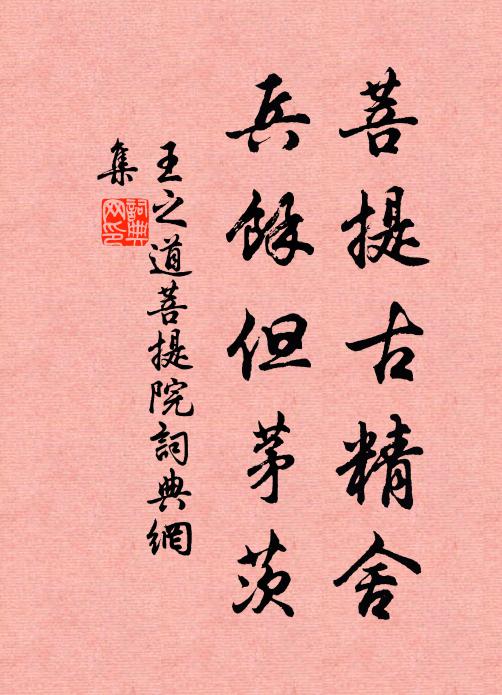 菩提古精舍
兵餘但茅茨
王之道菩提院詞典網
集
詞典
网印